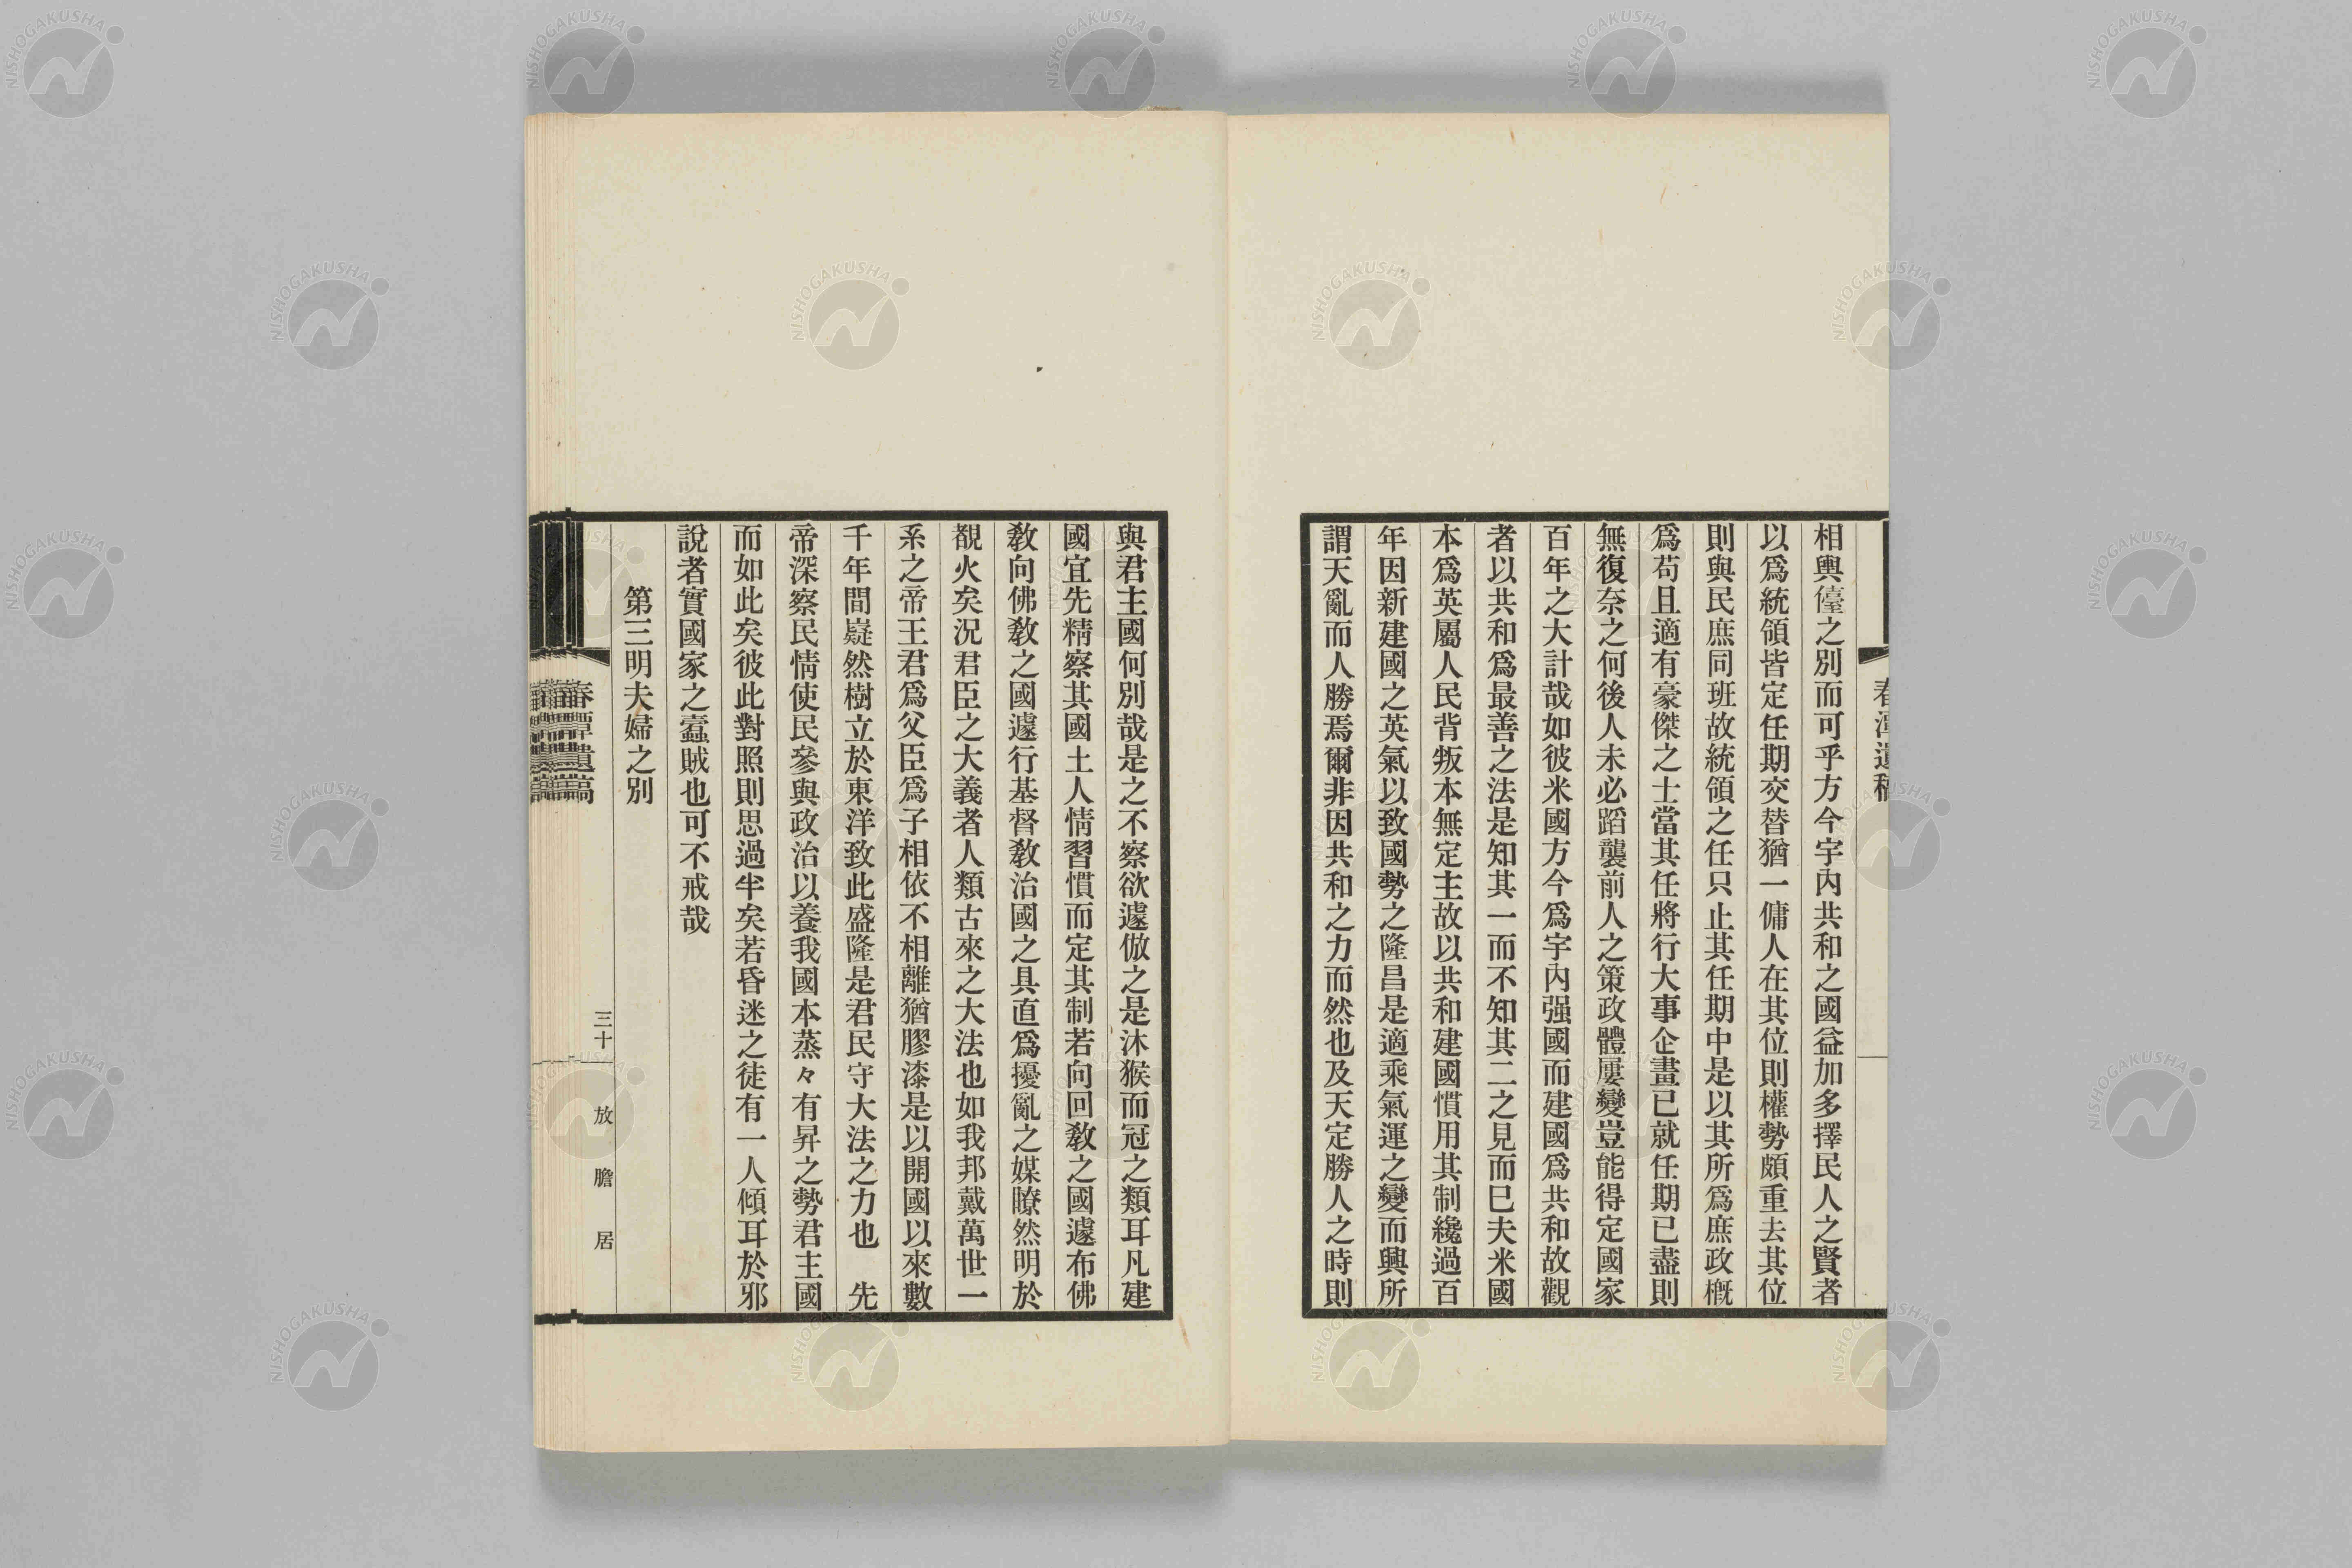 春潭遺稿
相輿儓之別而可乎方今宇內共和之國益加多擇民人之賢者
以爲統領皆定任期交替猶一傭人在其位則權勢頗重去其位
則與民庶同班故統領之任只止其任期中是以其所爲庶政槪
爲苟且適有豪傑之士當其任將行大事企畫已就任期已盡則
無復奈之何後人未必蹈襲前人之策政體屢變豈能得定國家
百年之大計哉如彼米國方今爲宇內强國而建國爲共和故觀
者以共和爲最善之法是知其一而不知其二之見而已夫米國
本爲英屬人民背叛本無定主故以共和建國慣用其制纔過百
年因新建國之英氣以致國勢之隆昌是適乘氣運之變而興所
謂天亂而人勝焉爾非因共和之力而然也及天定勝人之時則
與君主國何別哉是之不察欲遽倣之是沐猴而冠之類耳凡建
國宜先精察其國土人情習慣而定其制若向回敎之國遽布佛
敎向佛敎之國遽行基督敎治國之具直爲擾亂之媒瞭然明於
覩火矣況君臣之大義者人類古來之大法也如我邦戴萬世一
系之帝王君爲父臣爲子相依不相離猶膠漆是以開國以來數
千年間嶷然樹立於東洋致此盛隆是君民守大法之力也　先
帝深察民情使民參與政治以養我國本蒸々有昇之勢君主國
而如此矣彼此對照則思過半矣若昏迷之徒有一人傾耳於邪
說者實國家之蠹賊也可不戒哉
第三明夫婦之別
春潭遺稿
三十
放膽居
NISHOGAKUSHA